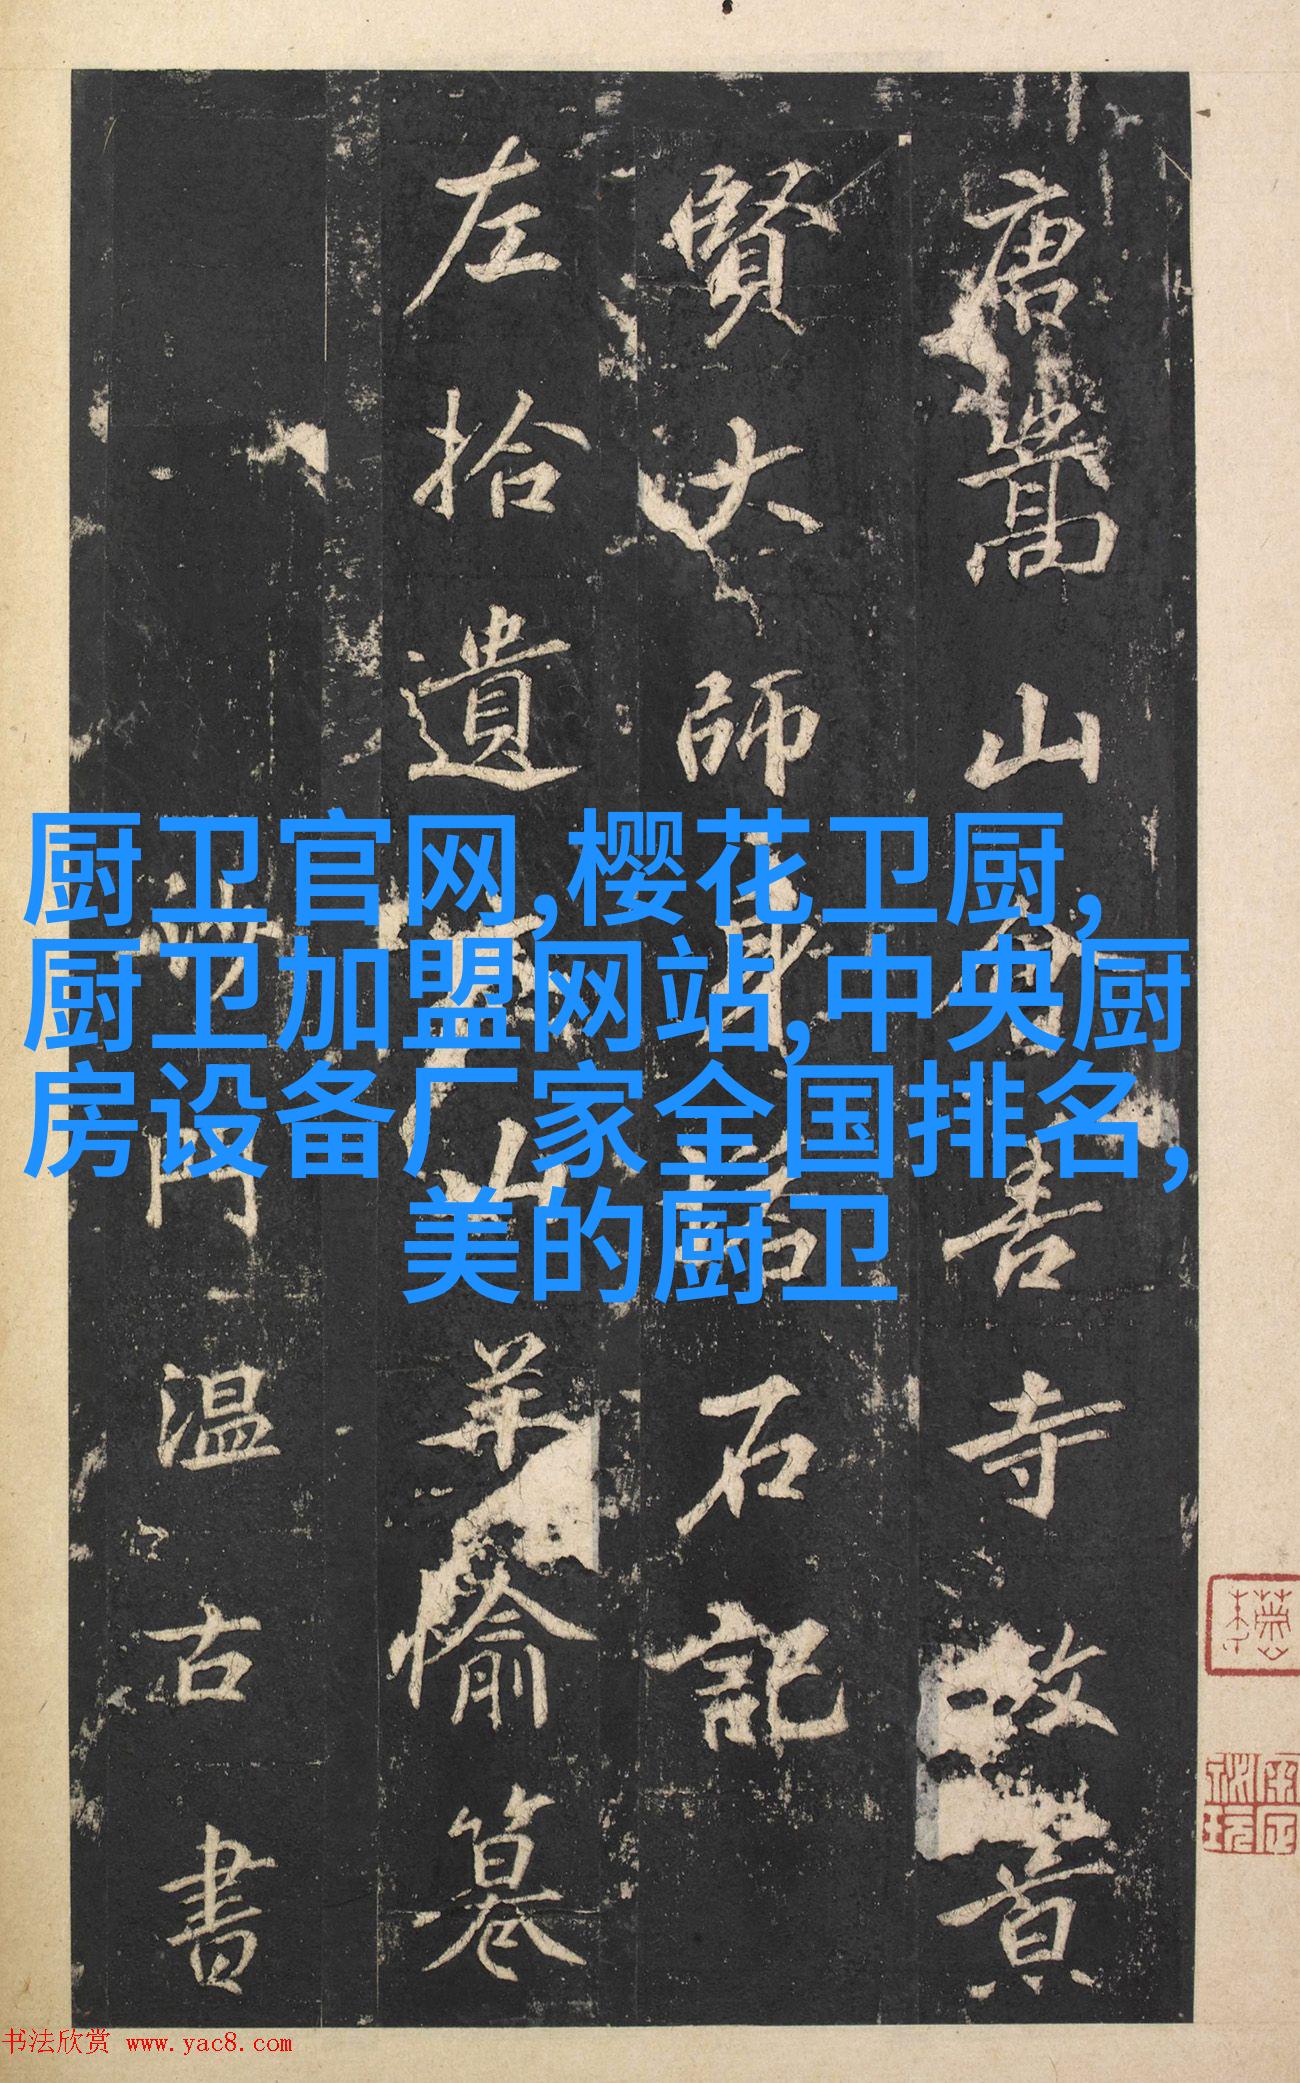 唐嵩山會善寺故景
賢大師身塔石記
左拾遺
羊愉纂
沙門溫古書
厨卫官网,樱花卫厨,
厨卫加盟网站,中央厨
房设备厂家全国排名,
美的厨卫
书法欣赏 www.yac8.com